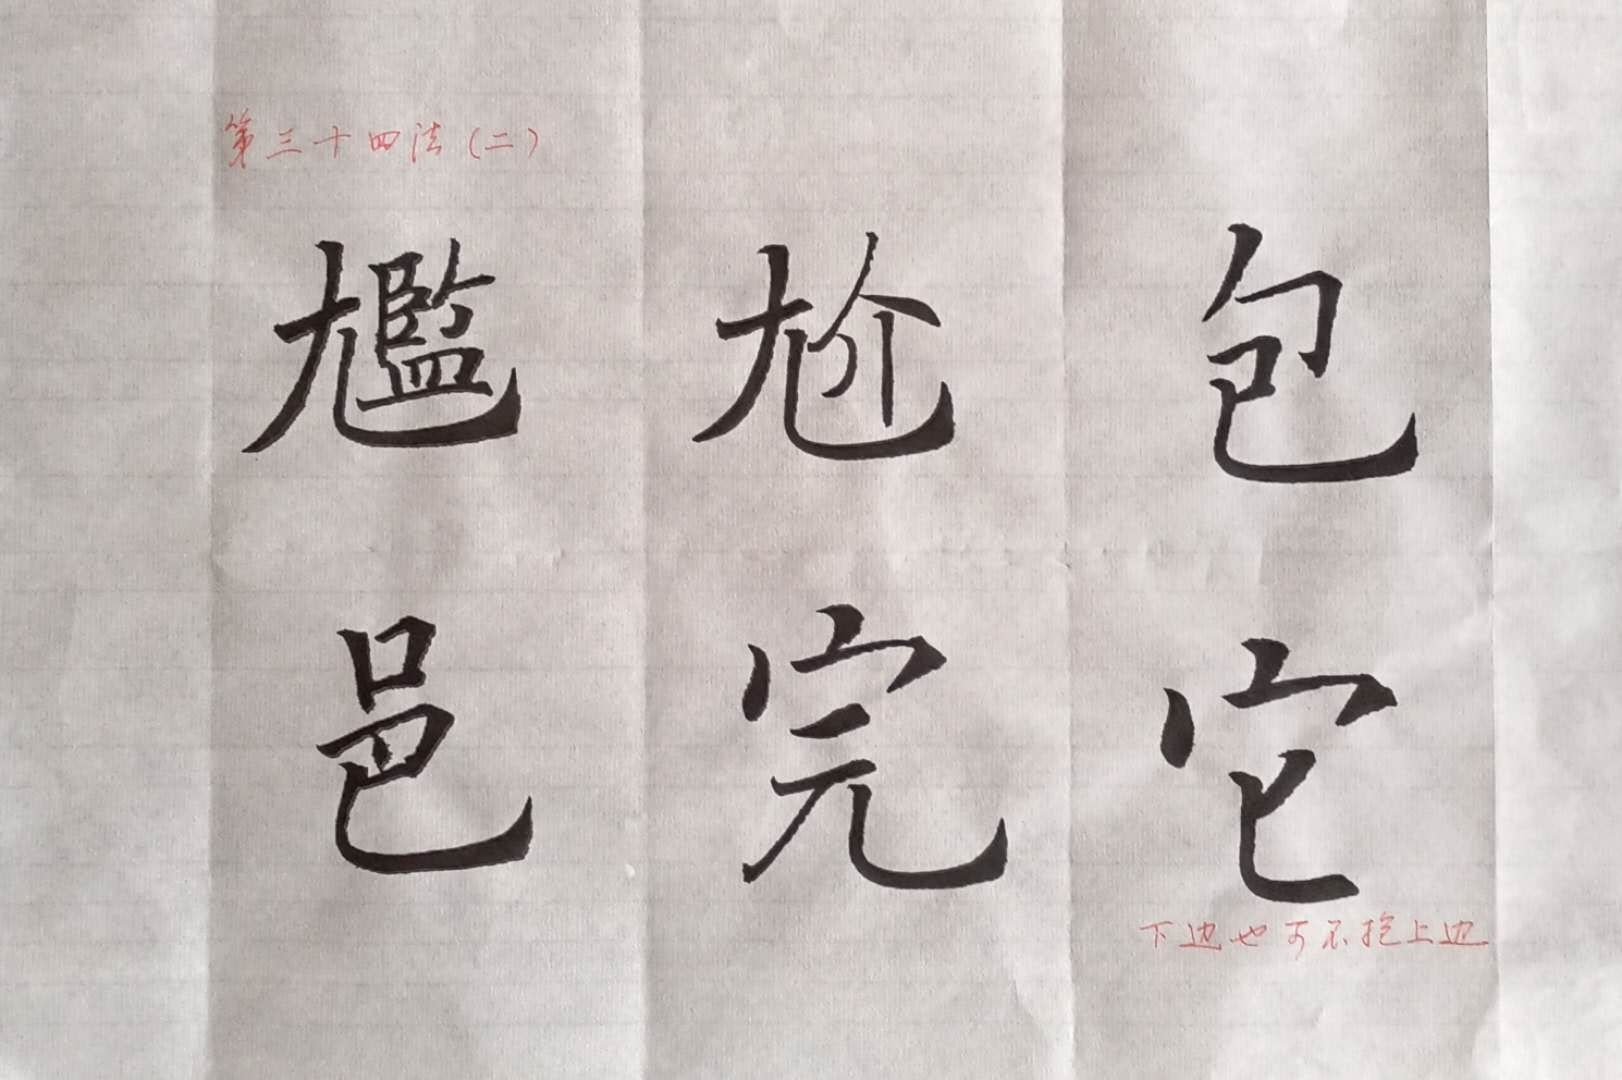 第三十四法(二)
尴尬包
邑完它
下边也可不抱上边